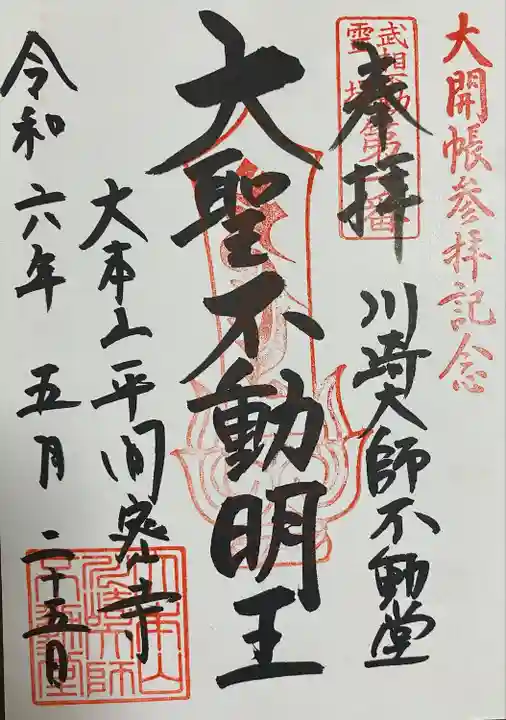 大開帳参拝記念
武相不動
霊場第一番
奉拝
川崎大師不動堂
大聖不動明王
大本山平間寺
令和六年五月二十五日